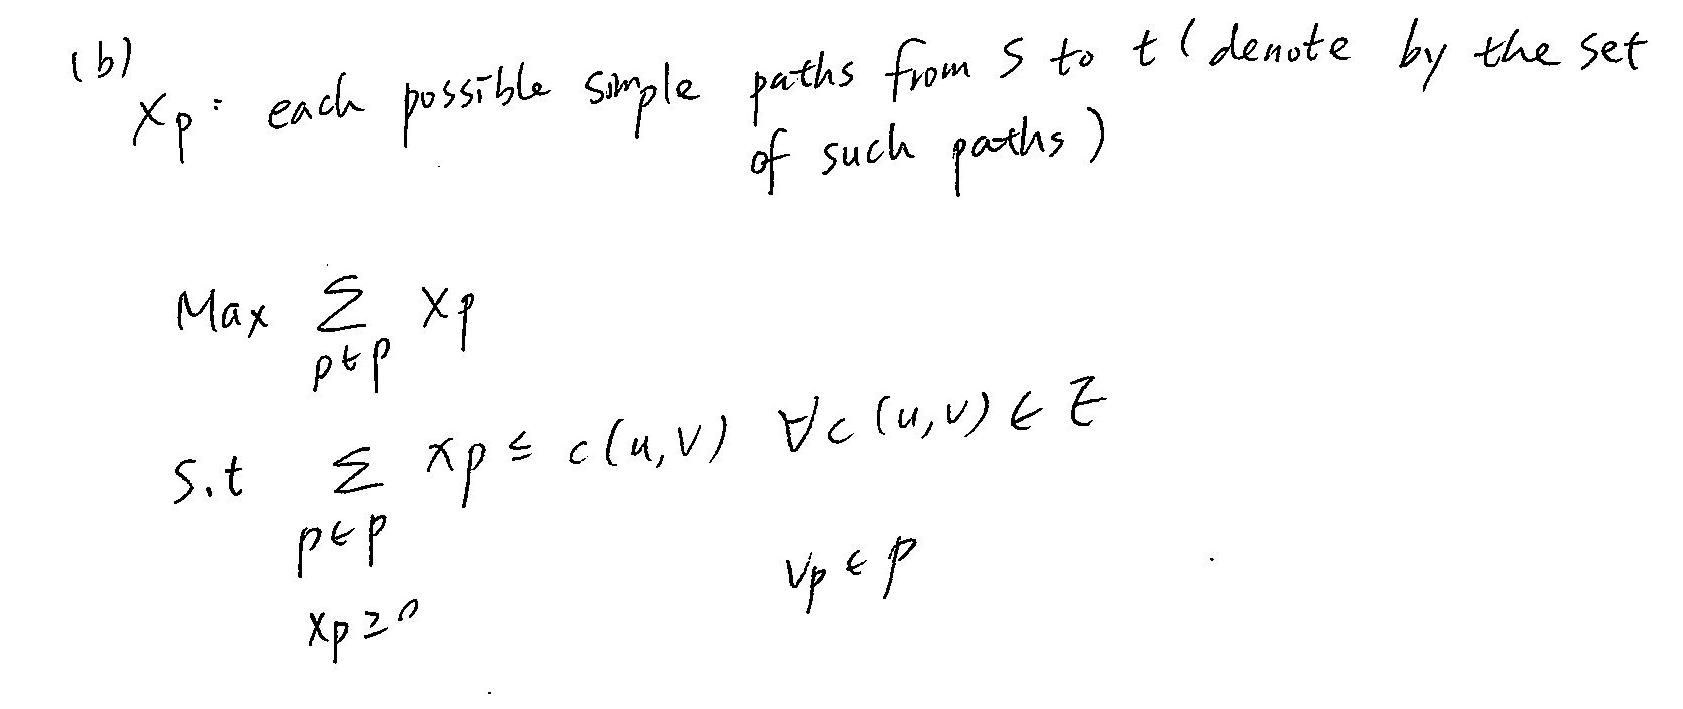 (b)
xp: each possible simple paths from s to t (denote by the set
of such paths)
Max Σ xp
p∈p
s.t Σ xp ≤ c(u,v) ∀c(u,v) ∈ E
p∈p
xp ≥ 0 ∀p ∈ p